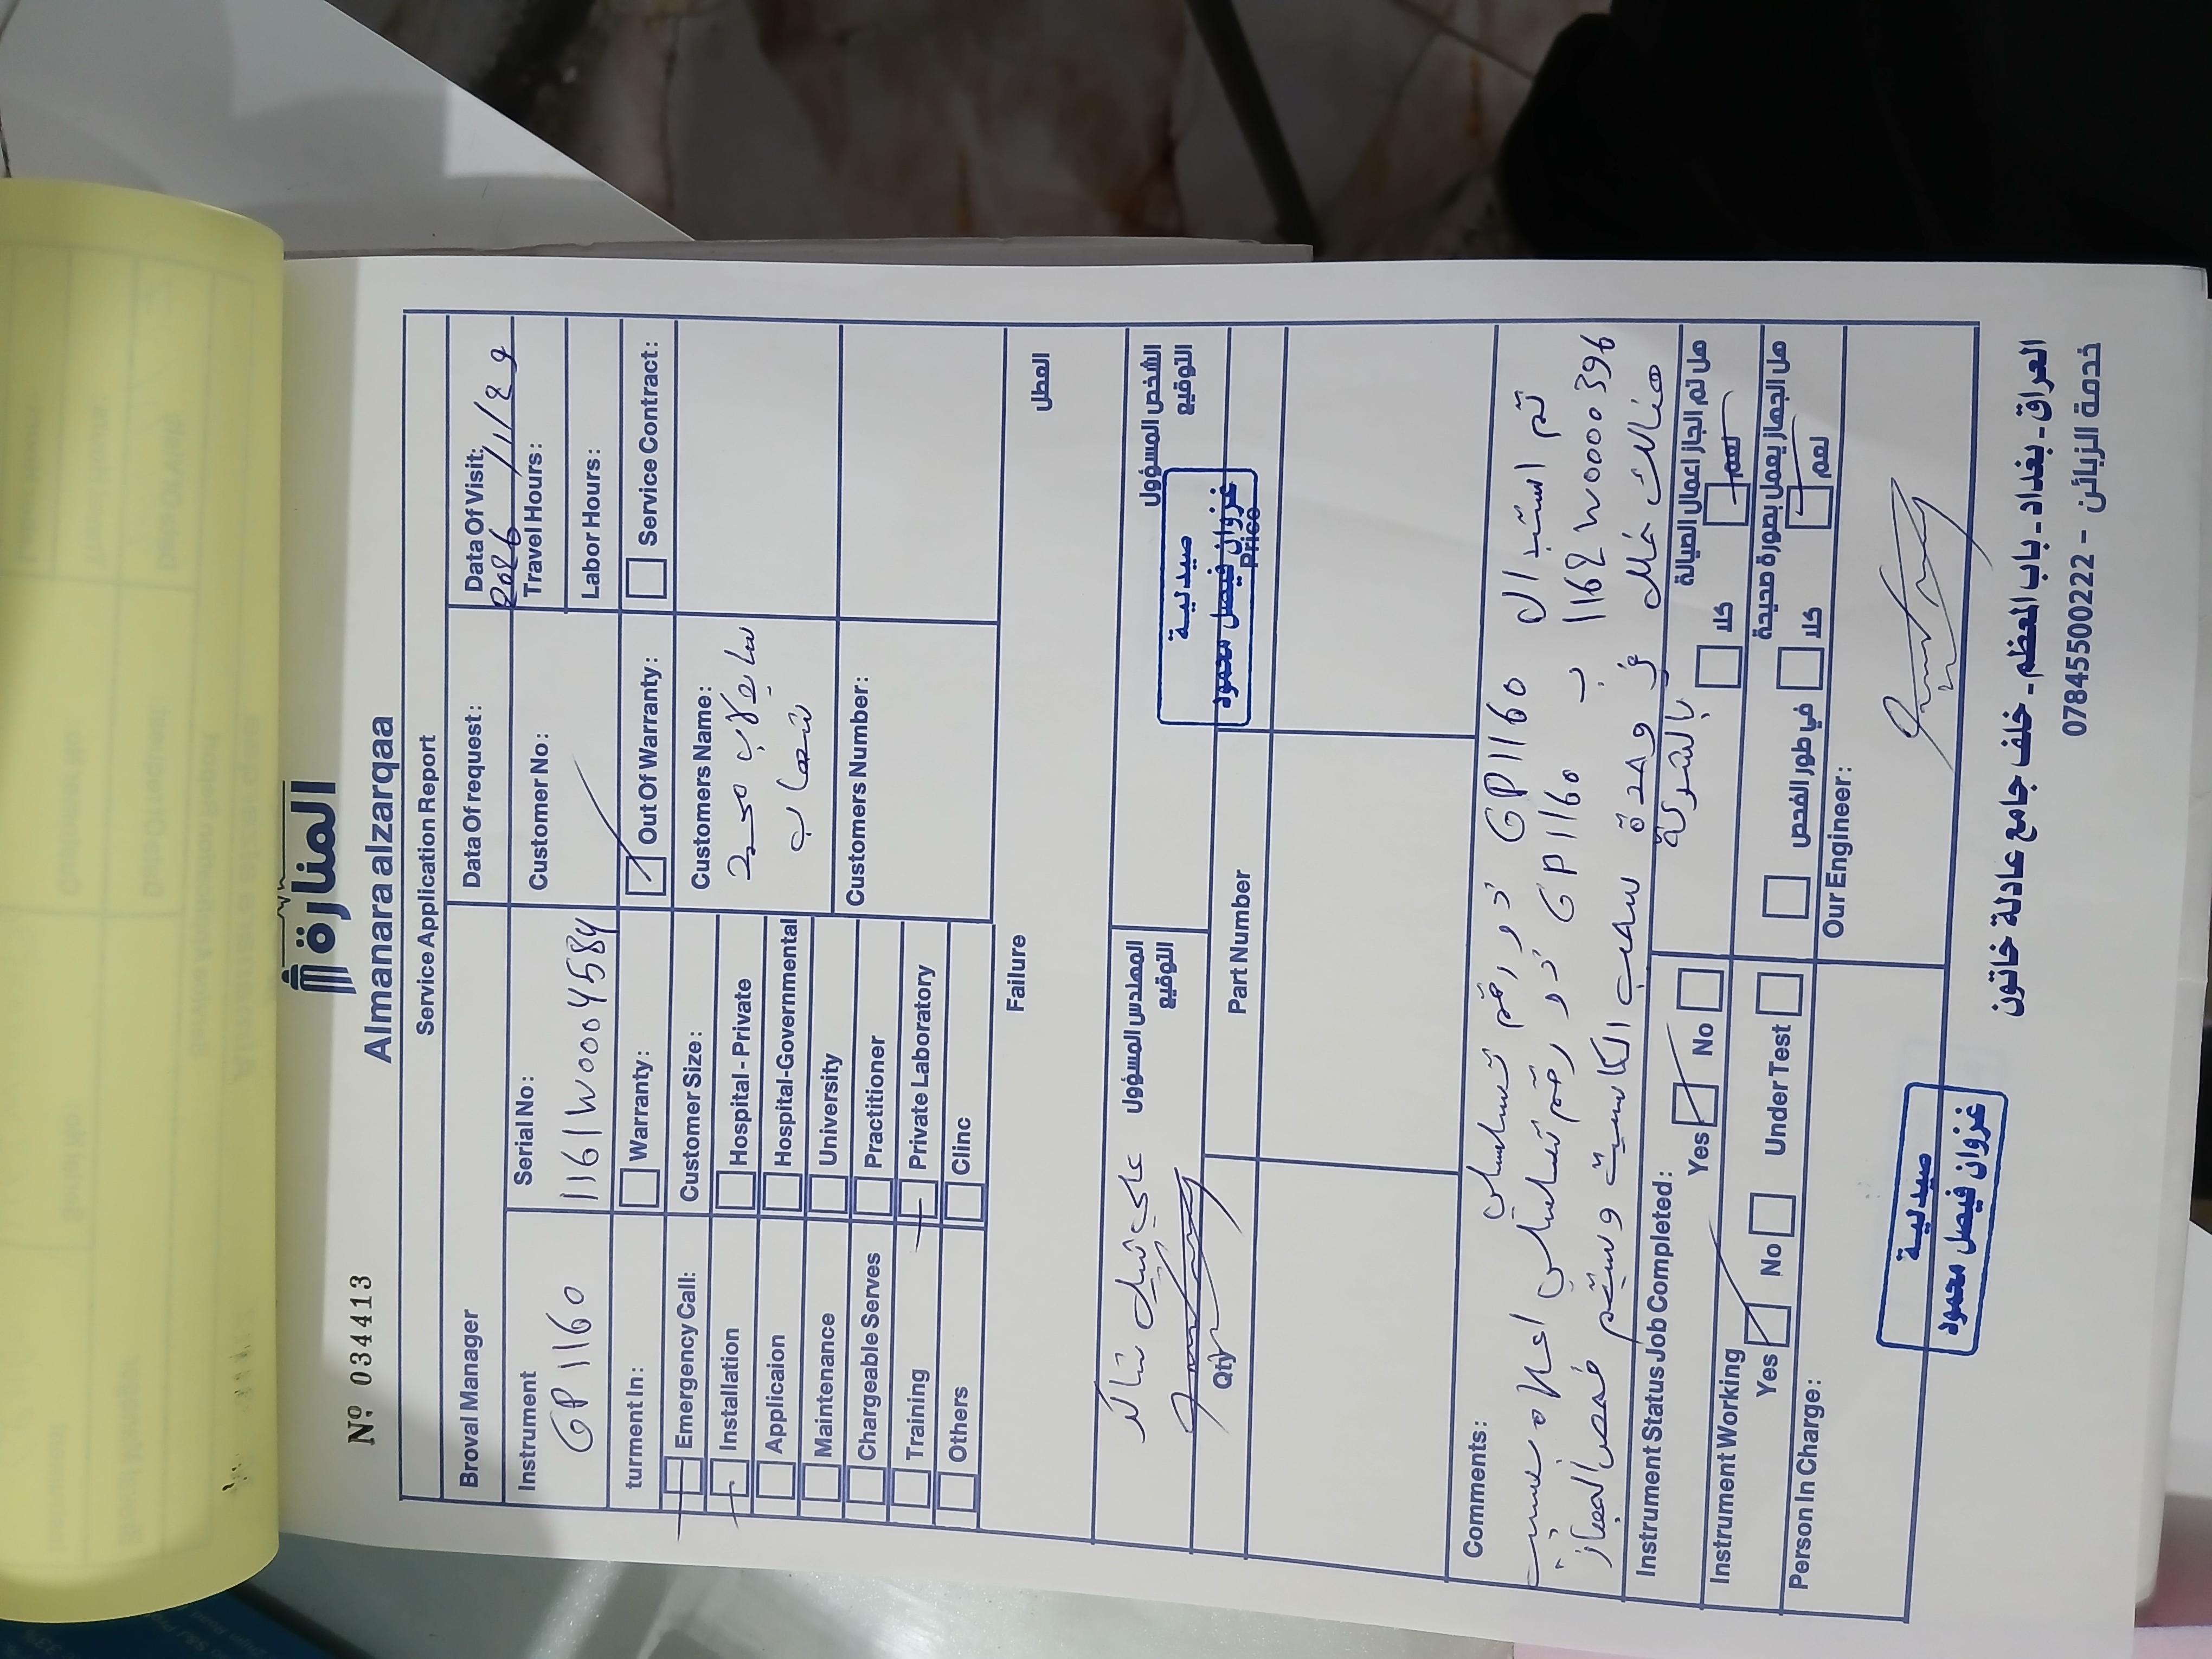 المنارة
Nº 034413
Almanara alzarqaa
Service Application Report
Broval Manager
Data Of request:
Data Of Visit:
2026/1/29
Instrument
GP1160
Serial No:
1161W0004584
Customer No:
Travel Hours:
Labor Hours:
turment In:
Warranty:
Out Of Warranty:
Service Contract:
Emergency Call:
Customer Size:
Customers Name:
Installation
Hospital - Private
Applicaion
Hospital-Governmental
شهاب
Maintenance
University
Chargeable Serves
Practitioner
Customers Number:
Training
Private Laboratory
Others
Clinc
Failure
العطل
المهندس المسؤول
الشخص المسؤول
التوقيع
التوقيع
صيدلية
غزوان فيصل محمود
Qty
Part Number
Price
Comments:
تم استبدال GP1160 ذو رقم تسلسلي
1162W0000396 ب GP1160 ذو رقم تسلسلي اعلاه بسبب
هنالك خلل في وحدة سحب الكاسيت وسيتم فحص الجهاز
بالشركة
Instrument Status Job Completed:
Yes
No
كلا
نعم
هل تم انجاز اعمال الصيانة
Instrument Working
Yes
No
Under Test
في طور الفحص
كلا
نعم
هل الجهاز يعمل بصورة صحيحة
Person In Charge:
Our Engineer:
صيدلية
غزوان فيصل محمود
العراق - بغداد - باب المعظم - خلف جامع عادلة خاتون
خدمة الزبائن - 07845500222